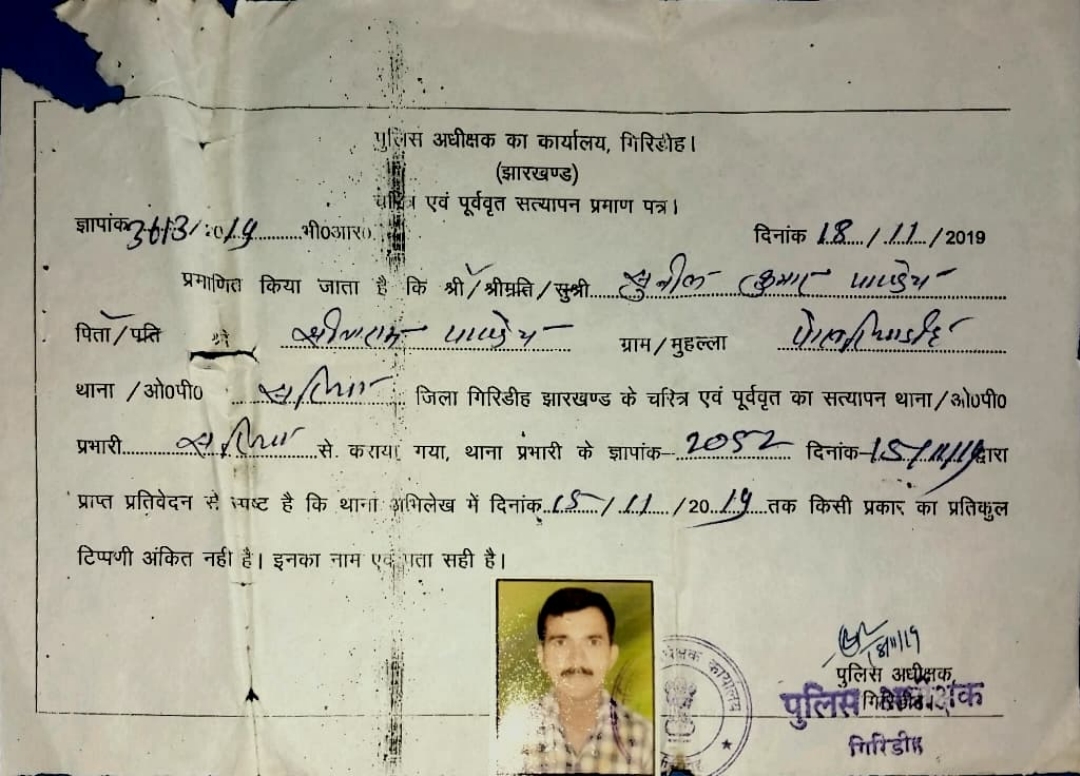 पुलिस अधीक्षक का कार्यालय, गिरिडीह।
(झारखण्ड)
चरित्र एवं पूर्ववृत सत्यापन प्रमाण पत्र।
ज्ञापांक 3613/2019 भी०आर०
दिनांक 18/11/2019
प्रमाणित किया जाता है कि श्री/श्रीमति/सुश्री सुनील कुमार पाण्डेय
पिता/पति श्री सीताराम पाण्डेय ग्राम/मुहल्ला
थाना /ओ०पी० सरिया जिला गिरिडीह झारखण्ड के चरित्र एवं पूर्ववृत का सत्यापन थाना/ओ०पी०
प्रभारी सरिया से कराया गया, थाना प्रभारी के ज्ञापांक-2052 दिनांक-15/11/19 द्वारा
प्राप्त प्रतिवेदन से स्पष्ट है कि थाना अभिलेख में दिनांक 15/11/2019 तक किसी प्रकार का प्रतिकुल
टिप्पणी अंकित नही है। इनका नाम एवं पता सही है।
18/11/19
पुलिस अधीक्षक
गिरिडीह।
पुलिस अधीक्षक
गिरिडीह
अधीक्षक कार्यालय